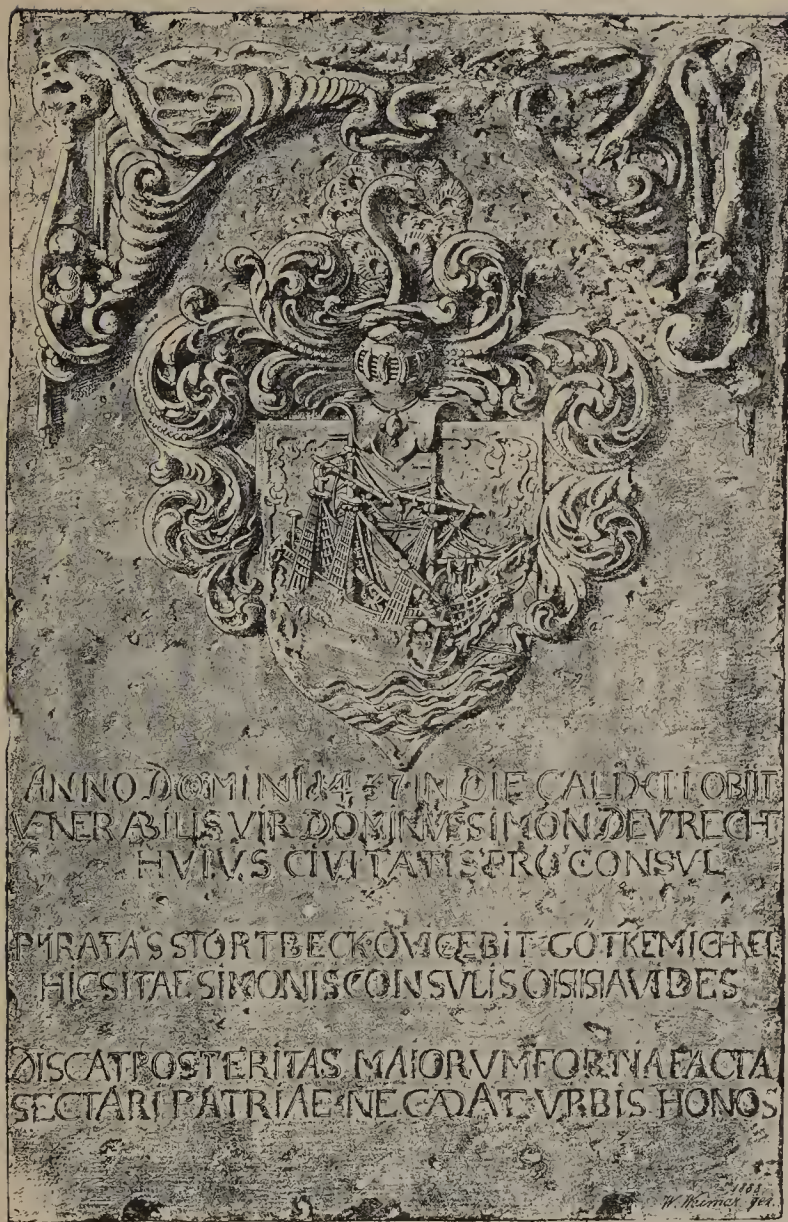 ANNO DOMINI 1437 IN DIE CALIXTI OBIIT
VENERABILIS VIR DOMINVS SIMON DE VTRECHT
HVIVS CIVITATIS PROCONSVL
PYRATAS STORTBECK GÖTKE MICHAEL
HIC SITA E SIMONIS CONSVLIS VIDES
DISCAT POSTERITAS MAIORVM FORTIA FACTA
SECTARI PATRIAE NE CADAT VRBIS HONOS
W. Weimar gez.